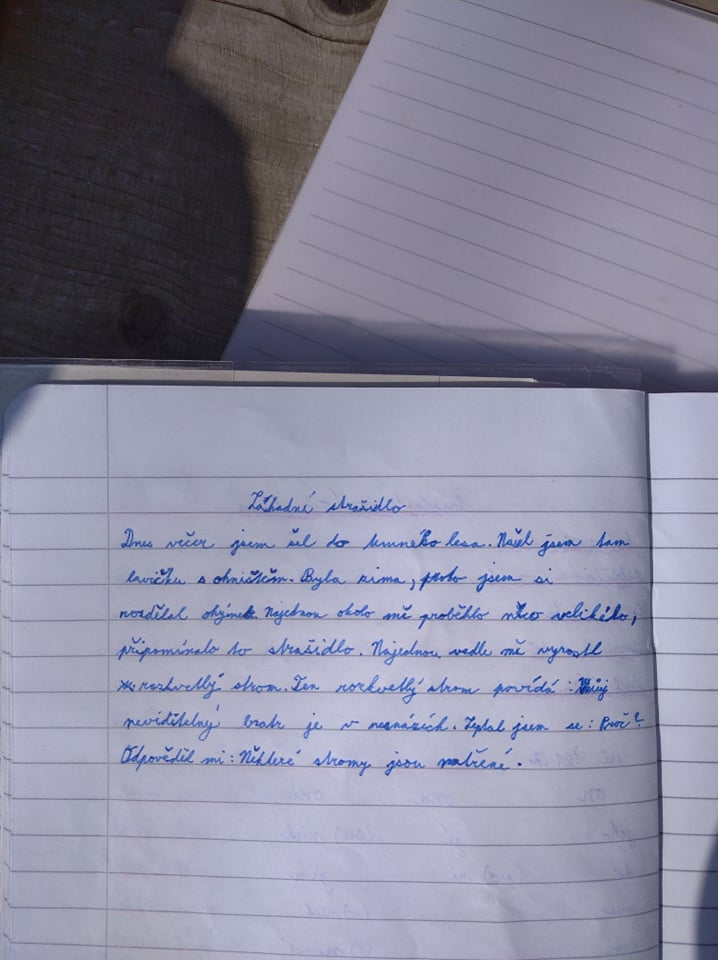 Záhadné strašidlo
Dnes večer jsem šel do temného lesa. Našel jsem tam
lavičku s ohništěm. Byla zima, proto jsem si
rozdělal ohýnek. Najednou okolo mě proběhlo něco velikého,
připomínalo to strašidlo. Najednou vedle mě vyrostl
rozkvetlý strom. Ten rozkvetlý strom povídá: Můj
neviditelný bratr je v nesnázích. Zeptal jsem se: Proč?
Odpověděl mi: Některé stromy jsou natřené.